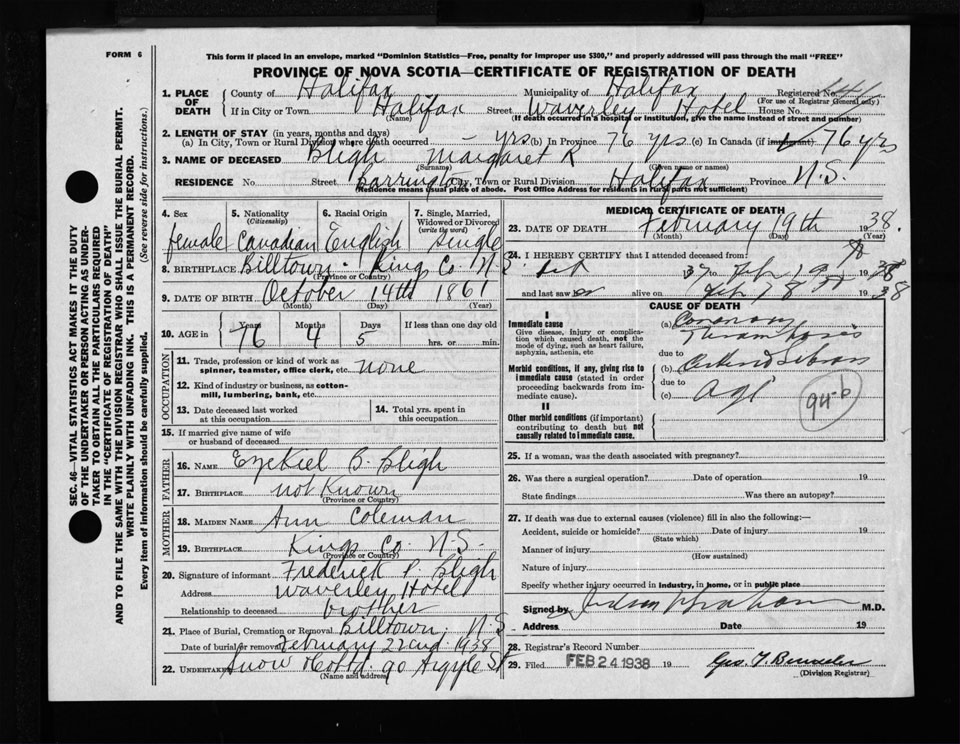 FORM 6
This form if placed in an envelope, marked "Dominion Statistics—Free, penalty for improper use $300," and properly addressed will pass through the mail "FREE"
PROVINCE OF NOVA SCOTIA—CERTIFICATE OF REGISTRATION OF DEATH
SEC. 46—VITAL STATISTICS ACT MAKES IT THE DUTY
OF THE UNDERTAKER OR PERSON ACTING AS UNDER-
TAKER TO OBTAIN ALL THE PARTICULARS REQUIRED
IN THE "CERTIFICATE OF REGISTRATION OF DEATH"
AND TO FILE THE SAME WITH THE DIVISION REGISTRAR WHO SHALL ISSUE THE BURIAL PERMIT.
WRITE PLAINLY WITH UNFADING INK. THIS IS A PERMANENT RECORD.
Every item of information should be carefully supplied. (See reverse side for instructions.)
1. PLACE OF DEATH County of Halifax Municipality of Halifax Registered No.
(For use of Registrar General only)
If in City or Town Halifax Street Waverley Hotel House No.
(Name) (If death occurred in a hospital or institution, give the name instead of street and number)
2. LENGTH OF STAY (in years, months and days)
(a) In City, Town or Rural Division where death occurred - yrs (b) In Province 76 yrs (c) In Canada (if immigrant) 76 yrs
3. NAME OF DECEASED Bligh Margaret R
(Surname) (Given name or names)
RESIDENCE No. Street Barrington City, Town or Rural Division Halifax Province N.S.
(Residence means usual place of abode. Post Office Address for residents in rural parts not sufficient)
4. Sex female
5. Nationality (Citizenship) Canadian
6. Racial Origin English
7. Single, Married, Widowed or Divorced (write the word) single
8. BIRTHPLACE Billtown Kings Co N.S.
(Province or Country)
9. DATE OF BIRTH October 14th 1861
(Month) (Day) (Year)
10. AGE in Years 76 Months 4 Days 5 If less than one day old hrs. or min.
OCCUPATION
11. Trade, profession or kind of work as spinner, teamster, office clerk, etc. none
12. Kind of industry or business, as cotton-mill, lumbering, bank, etc.
13. Date deceased last worked at this occupation
14. Total yrs. spent in this occupation
15. If married give name of wife or husband of deceased
FATHER
16. NAME Ezekiel B. Bligh
17. BIRTHPLACE not Known
(Province or Country)
MOTHER
18. MAIDEN NAME Ann Coleman
19. BIRTHPLACE Kings Co. N.S.
(Province or Country)
20. Signature of informant Frederick P. Bligh
Address Waverley Hotel
Relationship to deceased brother
21. Place of Burial, Cremation or Removal Billtown, N.S
Date of burial or removal February 22nd 1938
22. Undertaker Snow & Co Ltd. 90 Argyle St
(Name and address)
MEDICAL CERTIFICATE OF DEATH
23. DATE OF DEATH February 19th 1938.
(Month) (Day) (Year)
24. I HEREBY CERTIFY that I attended deceased from:
37 to Feb 19 1938
and last saw alive on Feb 1938
CAUSE OF DEATH
I
Immediate cause
Give disease, injury or complication which caused death, not the mode of dying, such as heart failure, asphyxia, asthenia, etc
(a) Coronary Thrombosis
due to
Morbid conditions, if any, giving rise to immediate cause (stated in order proceeding backwards from immediate cause).
(b)
due to
(c) age
94-b
II
Other morbid conditions (if important) contributing to death but not causally related to immediate cause.
25. If a woman, was the death associated with pregnancy?
26. Was there a surgical operation? Date of operation 19
State findings Was there an autopsy?
27. If death was due to external causes (violence) fill in also the following:—
Accident, suicide or homicide? Date of injury 19
(State which)
Manner of injury
(How sustained)
Nature of injury
Specify whether injury occurred in industry, in home, or in public place
Signed by Judson Graham M.D.
Address Date 19
28. Registrar's Record Number
29. Filed FEB 24 1938 19
(Division Registrar)